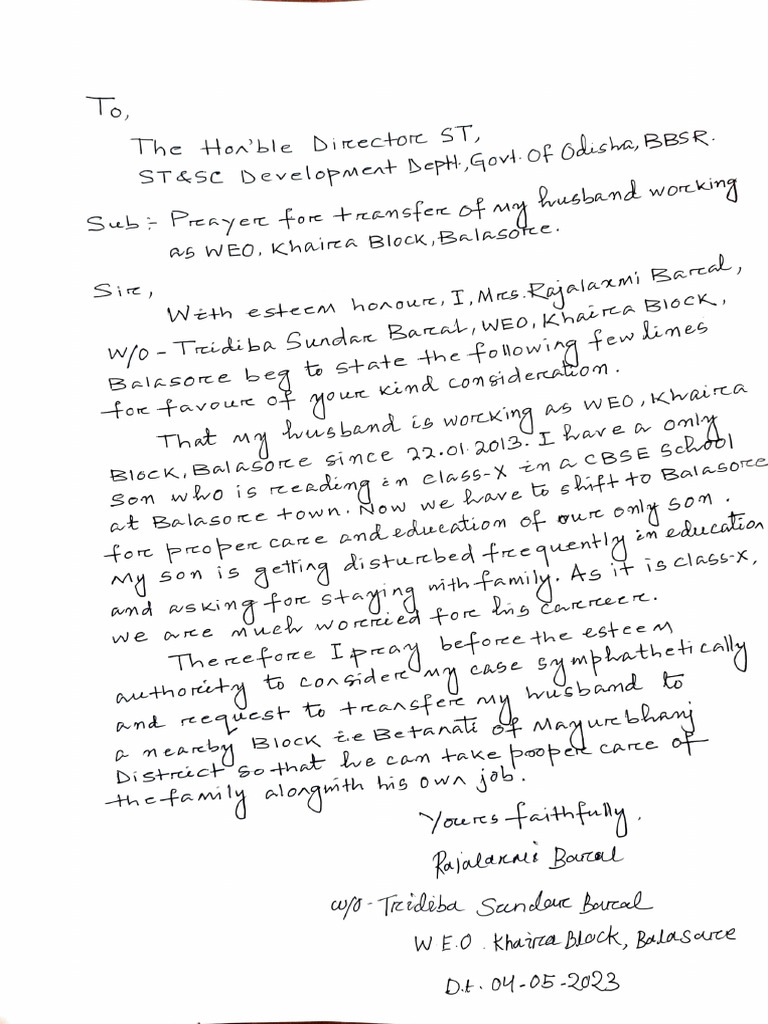 To,
The Hon'ble Director ST,
ST&SC Development Deptt., Govt. Of Odisha, BBSR.
Sub:- Prayer for transfer of my husband working
as WEO, Khaira Block, Balasore.
Sir,
With esteem honour, I, Mrs. Rajalaxmi Baral,
W/O - Tridiba Sundar Baral, WEO, Khaira Block,
Balasore beg to state the following few lines
for favour of your kind consideration.
That my husband is working as WEO, Khaira
Block, Balasore since 22.01.2013. I have a only
Son who is reading in class-X in a CBSE School
at Balasore town. Now we have to shift to Balasore
for proper care and education of our only son.
My son is getting disturbed frequently in education
and asking for staying with family. As it is class-X,
we are much worried for his carreer.
Therefore I pray before the esteem
authority to consider my case symphathetically
and request to transfer my husband to
a nearby Block i.e Betanati of Mayurbhanj
District so that he can take pooper care of
the family alongwith his own job.
Yours faithfully,
Rajalaxmi Baral
w/o - Tridiba Sundar Baral
W.E.O. Khaira Block, Balasore
Dt. 04-05-2023